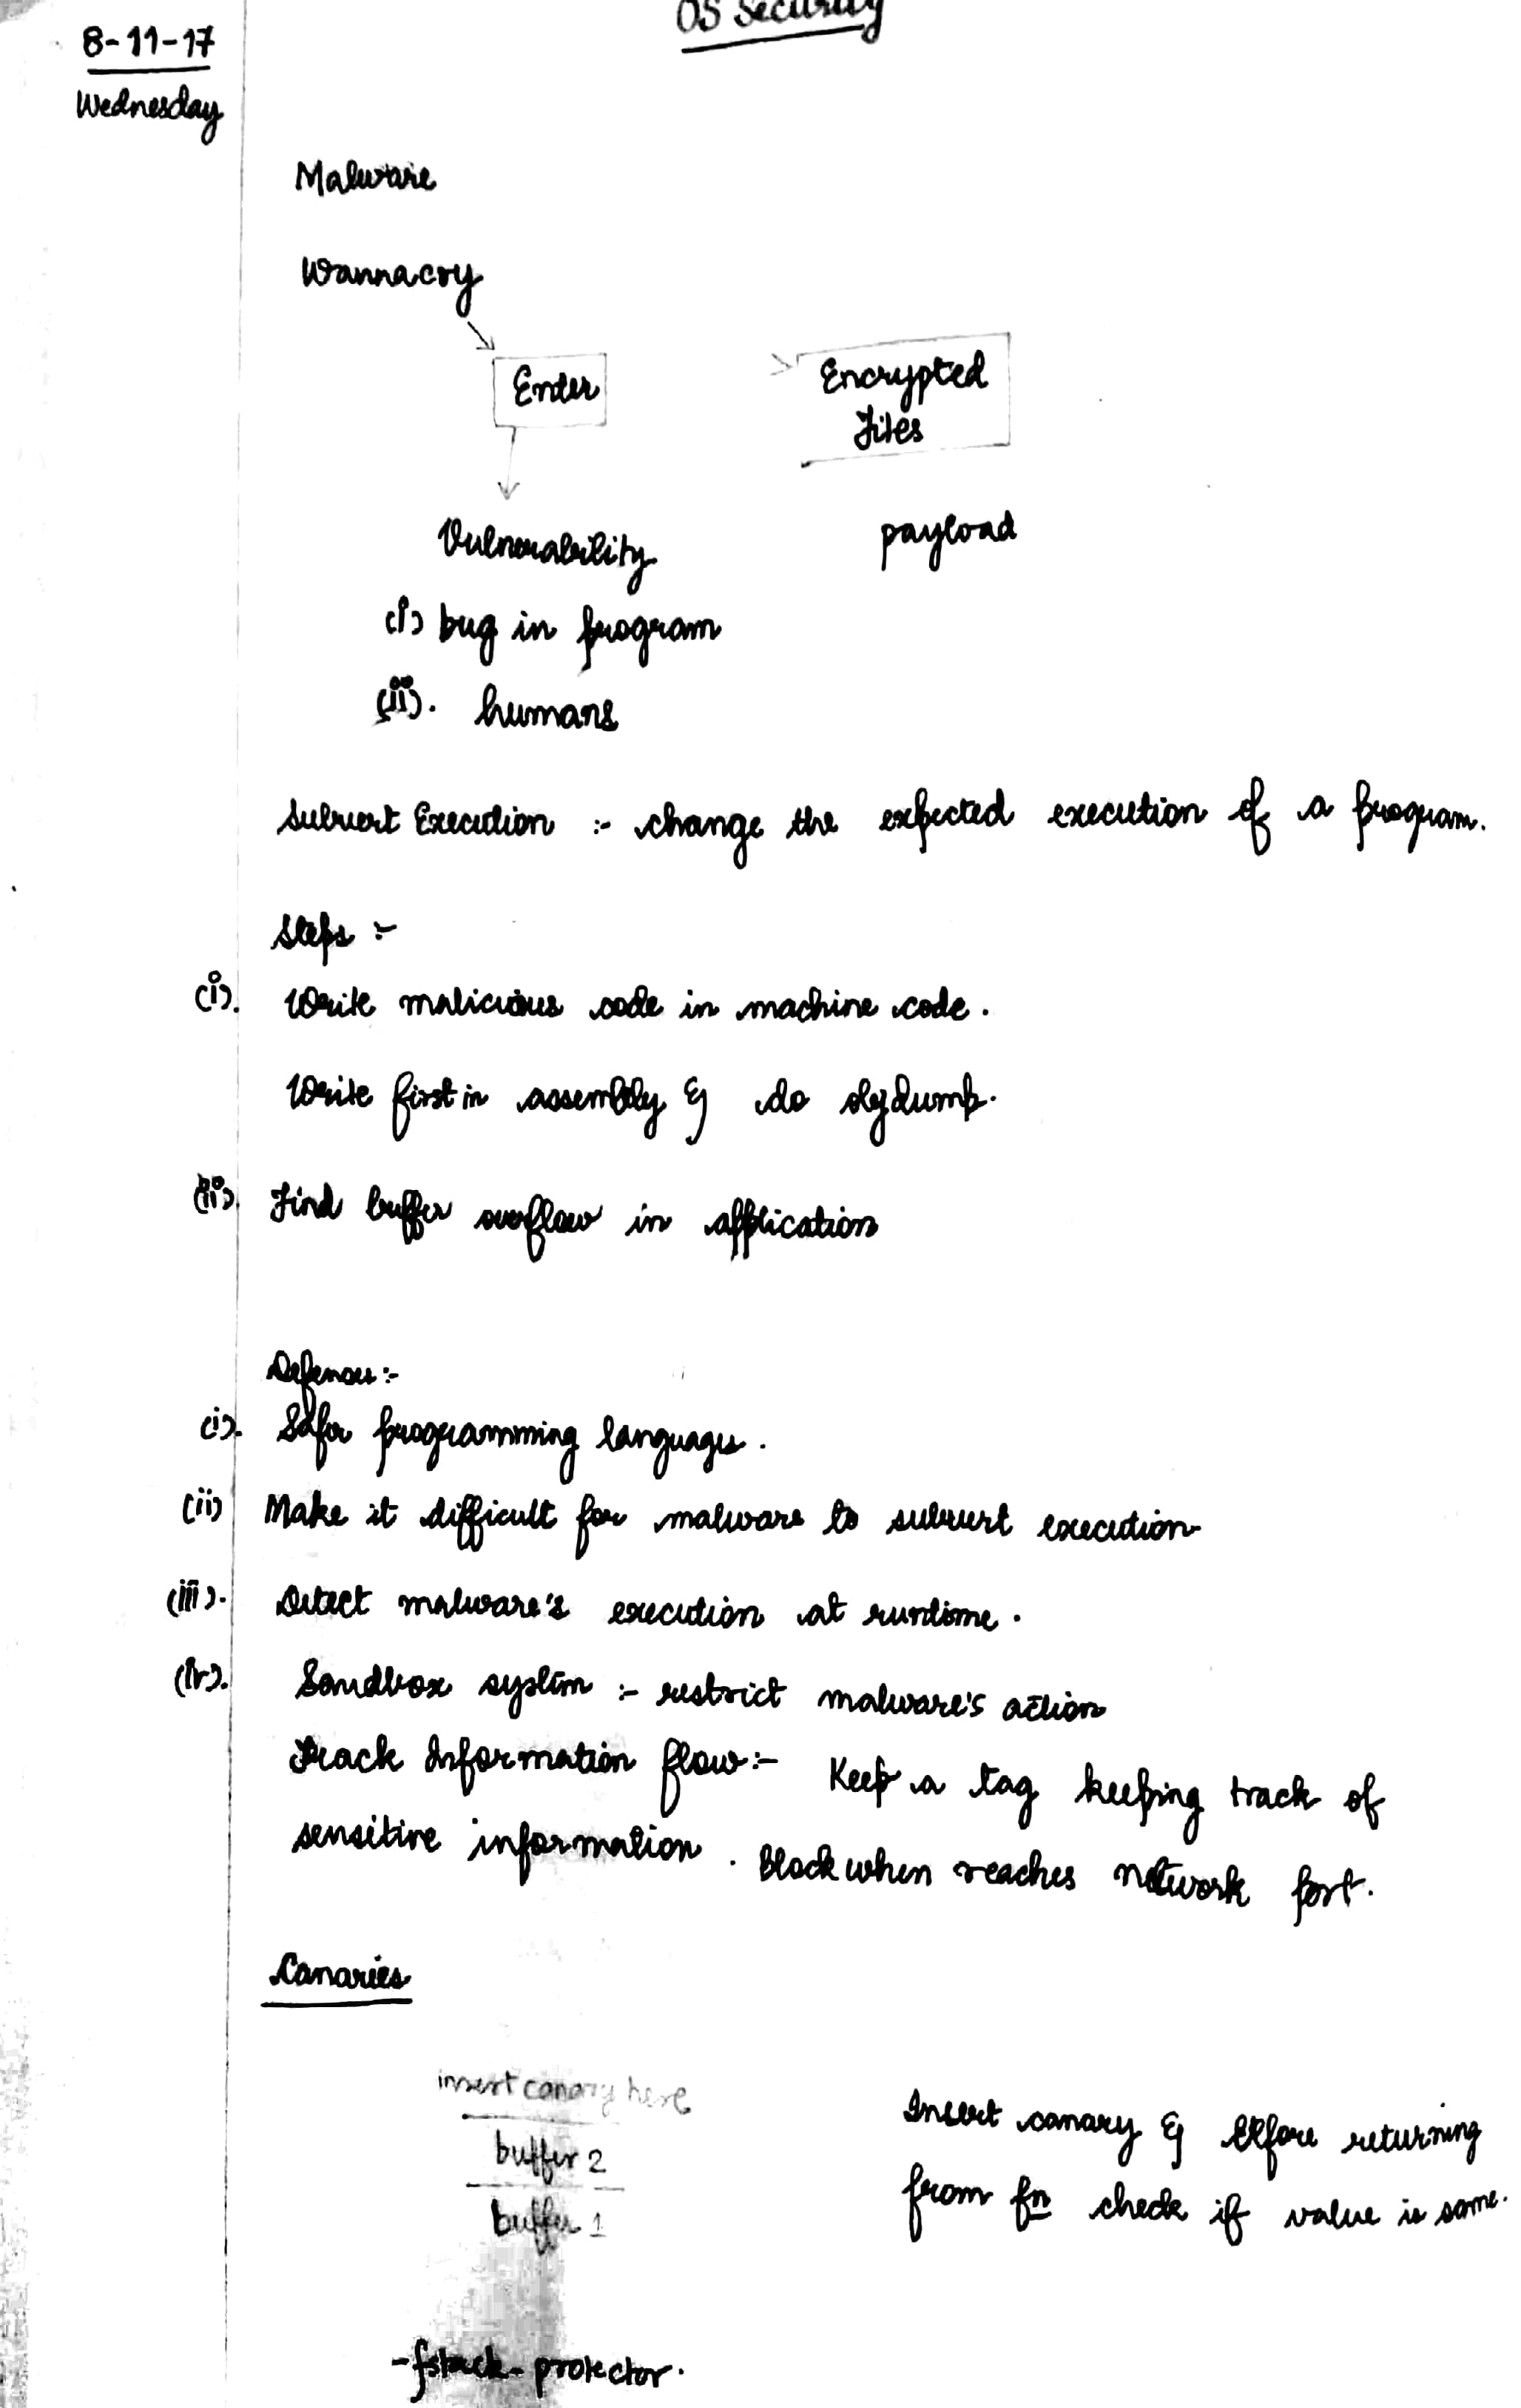 OS Security
8-11-17
Wednesday
Malware
Wannacry
Enter
Encrypted
Files
Vulnerability
payload
(i) bug in program
(ii). humans
Subvert Execution :- change the expected execution of a program.
Steps :-
(i). Write malicious code in machine code.
Write first in assembly & do objdump.
(ii). Find buffer overflow in application
Defenses:-
(i). Safer programming languages.
(ii) Make it difficult for malware to subvert execution
(iii). Detect malware's execution at runtime.
(iv). Sandbox system :- restrict malware's action
Track Information flow:- Keep a tag keeping track of
sensitive information. Block when reaches network port.
Canaries
insert canary here
buffer 2
buffer 1
Insert canary & before returning
from fn check if value is same.
-fstack-protector.